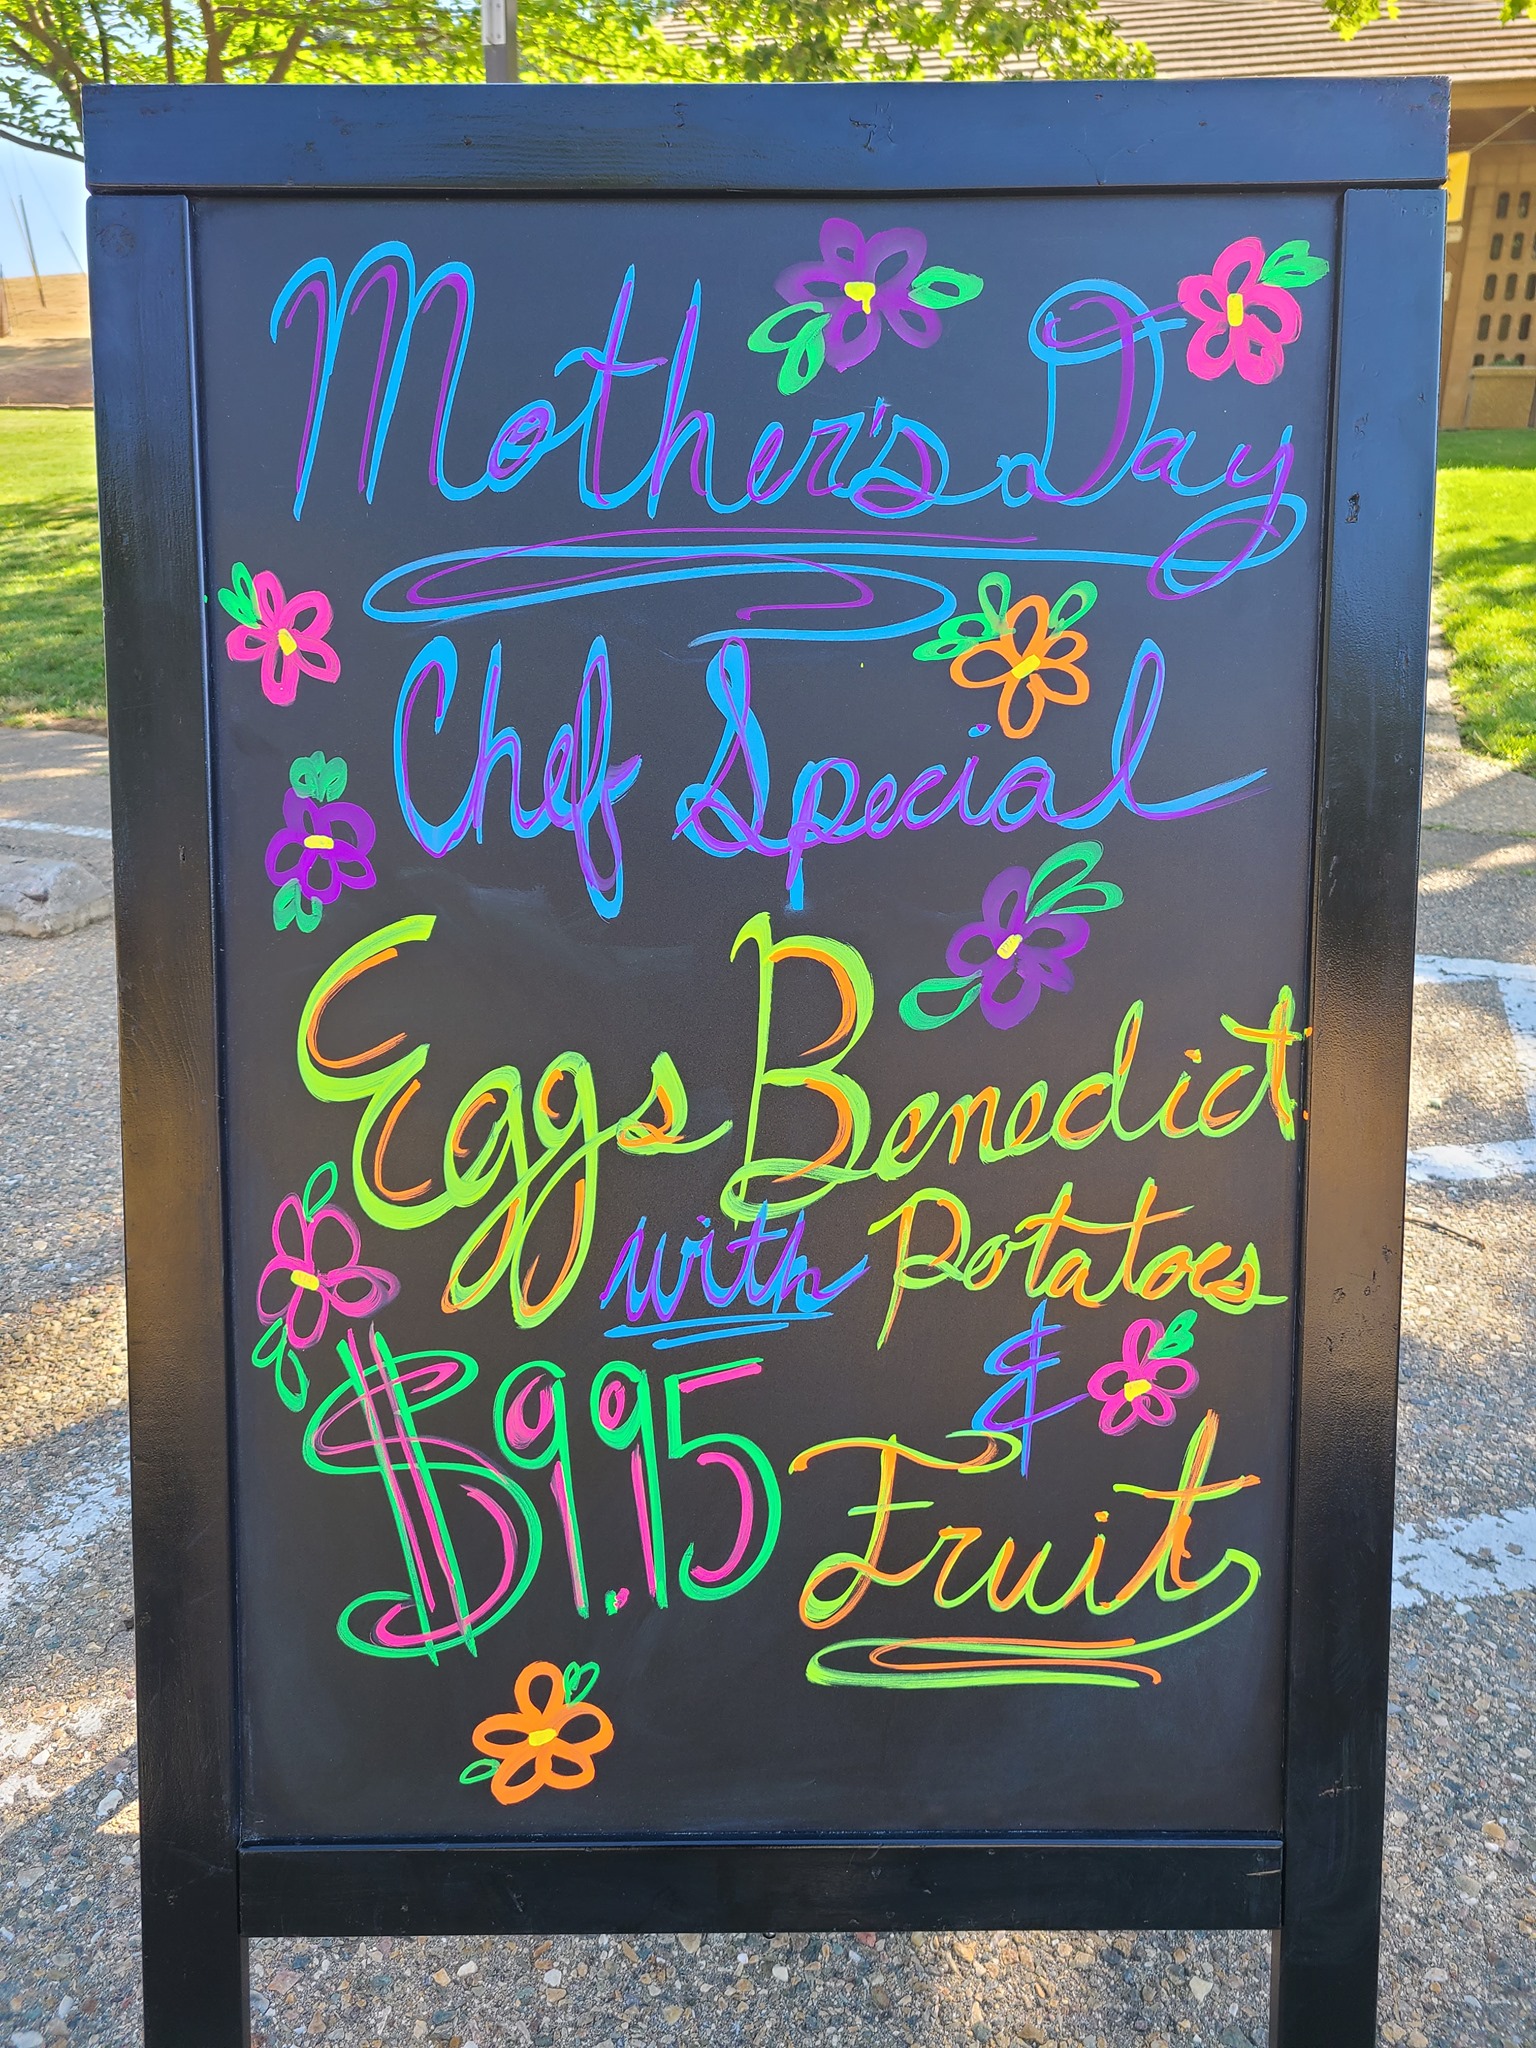 Mother's Day
Chef Special
Eggs Benedict
with Potatoes
&
$9.95 Fruit